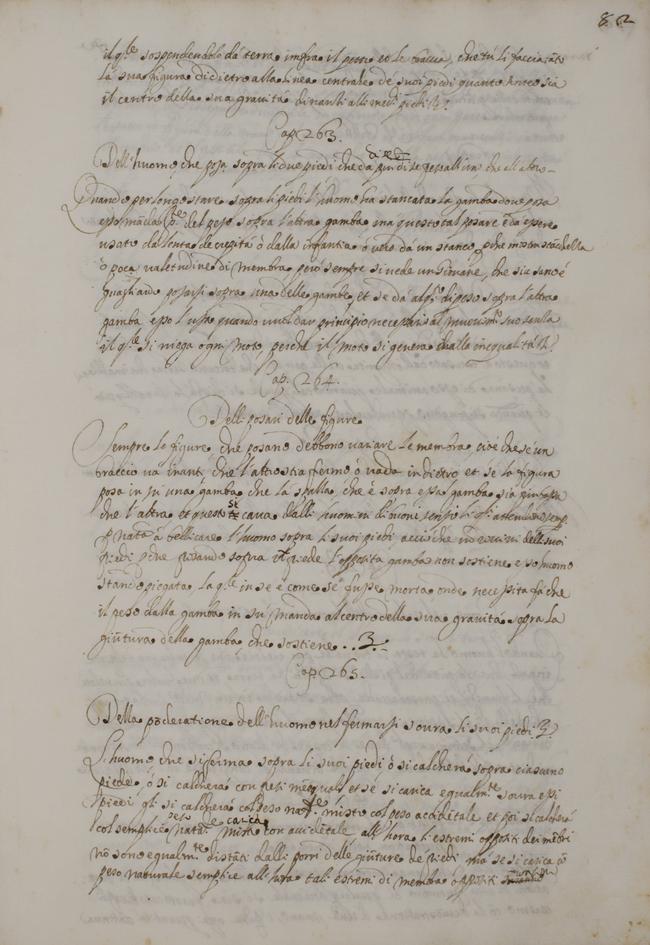 82
il q.le sospendendolo da terra infra il petto et le braccia, che tu li facci tanto
la sua figura di dietro alla linea centrale de suoi piedi quanto
il centro della sua gravità dinanti alli medi piedi
Cap. 263.
Dell'huomo, che posa sopra li due piedi che dà di se che all'altro
Quando per longo stare sopra li piedi l'huomo ha stancata la gamba dove posa
esso manda p.te del peso sopra l'altra gamba ma questo tal posare è da essere
usato dalla vechia ò dalla infantia ò vero da un stanco
ò poca valetudine di membra però sempre si vede un giovane, che sia sano è
gagliardo posarsi sopra una delle gambe, et se dà di peso sopra l'altra
gamba esso l'usa quando vuol dar principio necessario al suo senza
il q.le si niega ogni moto, perché il moto si genera dalle inequalità
Cap. 264.
Dell posari delle figure
Sempre le figure, che posano debbono variare le membra, cioè che se un
braccio va inanti che l'altro stia fermo ò vada indietro et se la figura
posa in su una gamba che la spalla, che è sopra essa gamba sia
che l'altra et questo si cava dalli huomini di buoni sensi
à bellicare l'huomo sopra li suoi piedi acciò che non ruvini delli suoi
piedi, p che posando sopra piede l'opposita gamba non sostiene esso huomo
stando piegata la q.le in se è come se fusse morta onde necessita fà che
il peso dalla gamba in su manda al centro della sua gravità sopra la
giūtura della gamba che sostiene . . 3.
Cap. 265.
Della pōderatione dell'huomo nel fermarsi soura li suoi piedi 3.
L'huomo che si ferma sopra li suoi piedi ò si calcherà sopra ciascuno
piede, ò si calcherà con pesi et sé si carica egualm.te soura essi
piedi si calcherà col peso nat.le misto col peso accidētale et poi si calcherà
col semplice peso nat.le le carica misto con accidētale all'hora li estremi oppositi dei mēbri
nō sono egualm.te distāti dalli delle giūture de piedi ma se si carica cō
peso naturale semplice all'hora tali estremi di membra oppositi